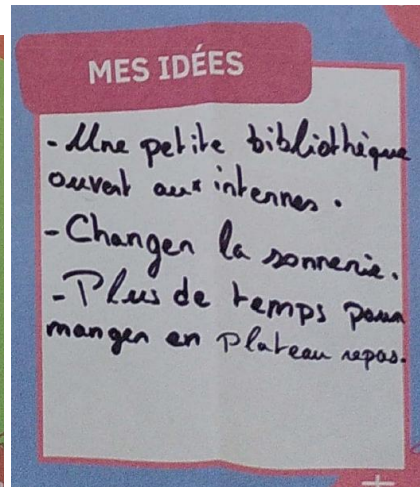 MES IDÉES
- Une petite bibliothèque
ouvert aux internes.
- Changer la sonnerie.
- Plus de temps pour
manger en plateau repas.